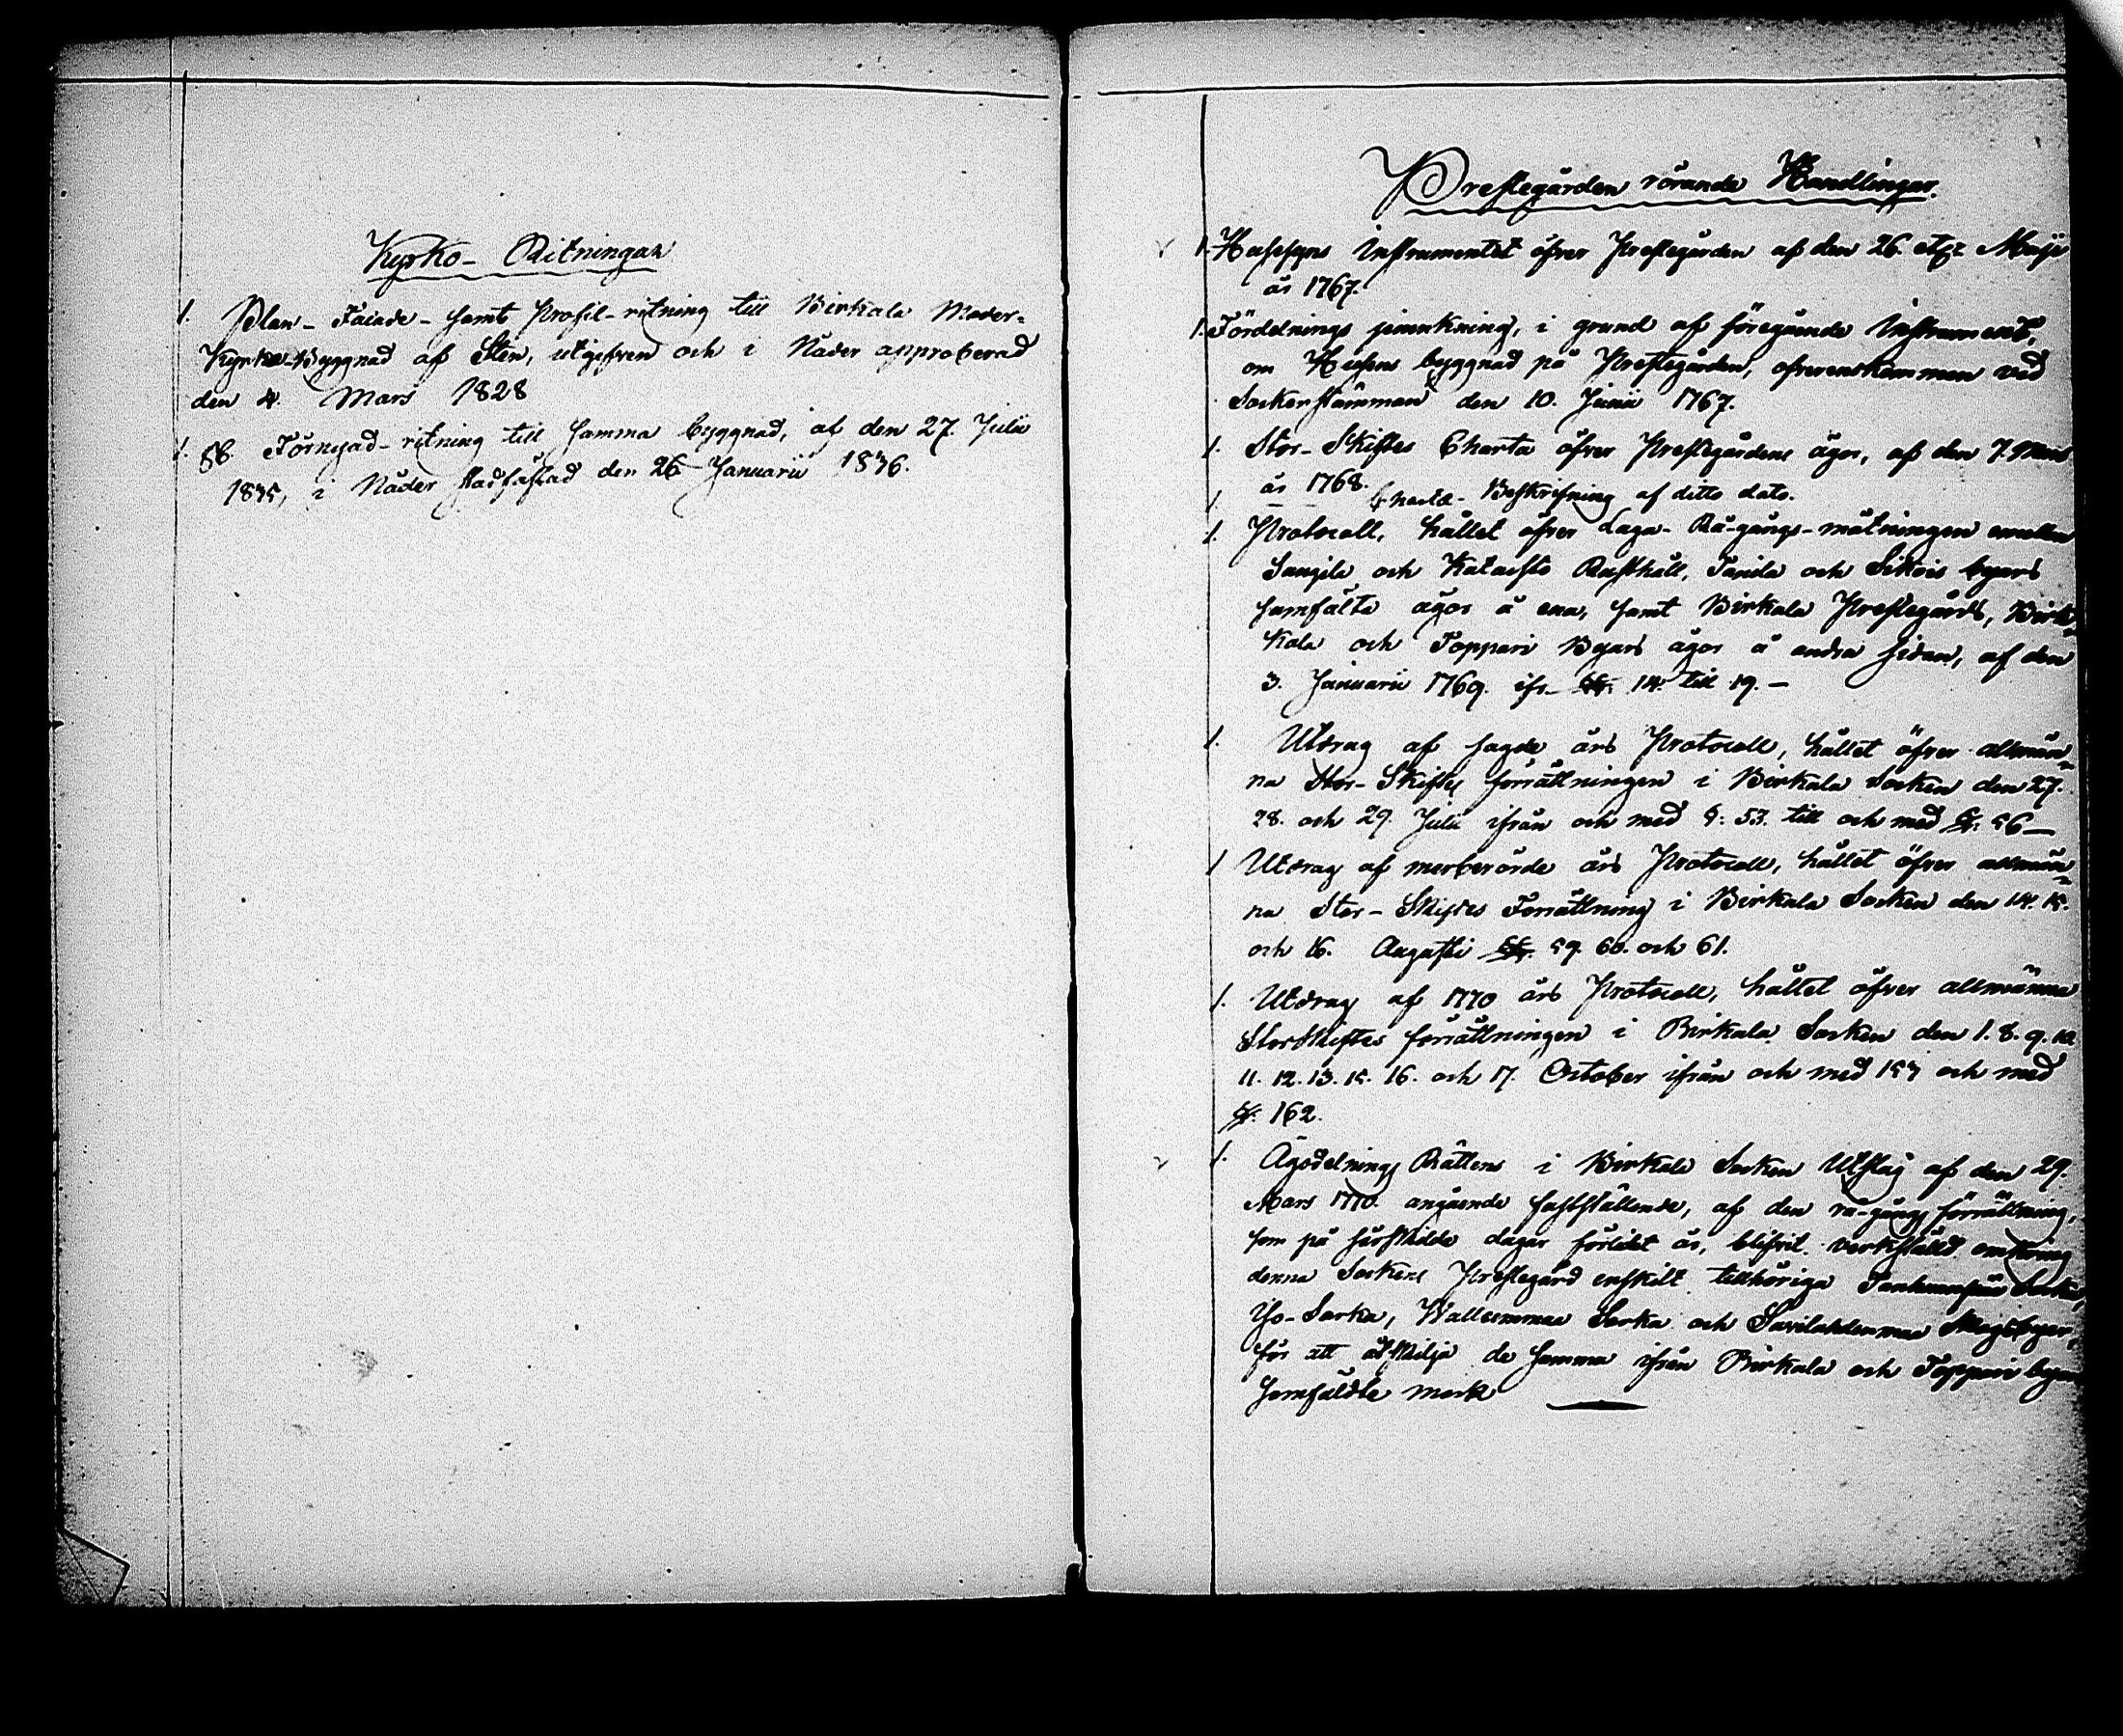 Kyrko- Ritningar
1. Plan- Facade- samt Profil-ritning till Birkala Moder-
Kyrko-Byggnad af Sten, utgifven och i Nåder approberad
den 4. Mars 1828
1. Förnyad-ritning till samma byggnad, af den 27. Julii
1835, i Nåder stadfästad den 26 Januarii 1836.
Prestegården rörande Handlingar.
1. Husesyns instrumentet öfver Prestegården af den 26. Maji
år 1767.
1. Fördelnings i grund af föregående Instrument,
om Husens byggnad på Prestegården, öfverenskommen vid
Sockenstämman den 10. Junii 1767.
1. Stor-Skiftes Charta öfver Prestegårdens ägor, af den 7. Maii
år 1768.
1. Charte- Beskrifning af ditto dato.
1. Protocoll, hållet öfver Laga- Rå-gångs-mätningen emellan
och Rusthåll, och byars
samfälta ägor å ena, samt Birkala Prestegårds, Birk-
kala och Toppari Byars ägor å andra sidan, af den
3. Januarii 1769. ifr. §§. 14. till 19.-
1. Utdrag af sagde års Protocoll, hållet öfver allmän-
na Stor-Skiftes förrättningen i Birkala Socken den 27.
28. och 29. Julii ifrån och med §. 53. till och med §. 56-
1 Utdrag af merberörde års Protocoll, hållet öfver allmän-
na Stor-Skiftes Forrättning i Birkala Socken den 14. 15.
och 16. Augusti §§. 59. 60. och 61.
1. Utdrag af 1770 års Protocoll, hållet öfver allmänna
Storskiftes förrättningen i Birkala Socken den 1. 8. 9. 10.
11. 12. 13. 15. 16. och 17. October ifrån och med 157 och med
§. 162.
1. Ägodelnings Rättens i Birkala Socken Utslag af den 29.
Mars 1770. angående fastställande, af den rå-gångs förrättning,
som på särskildde dagar förlidet år, blifvit verkställd omkring
denna Sockens Prestegård enskilt tillhöriga
Iso-Sarka, Sarka och
för att åtskilja de samma ifrån Birkala och Toppari byars
samfäldte mark